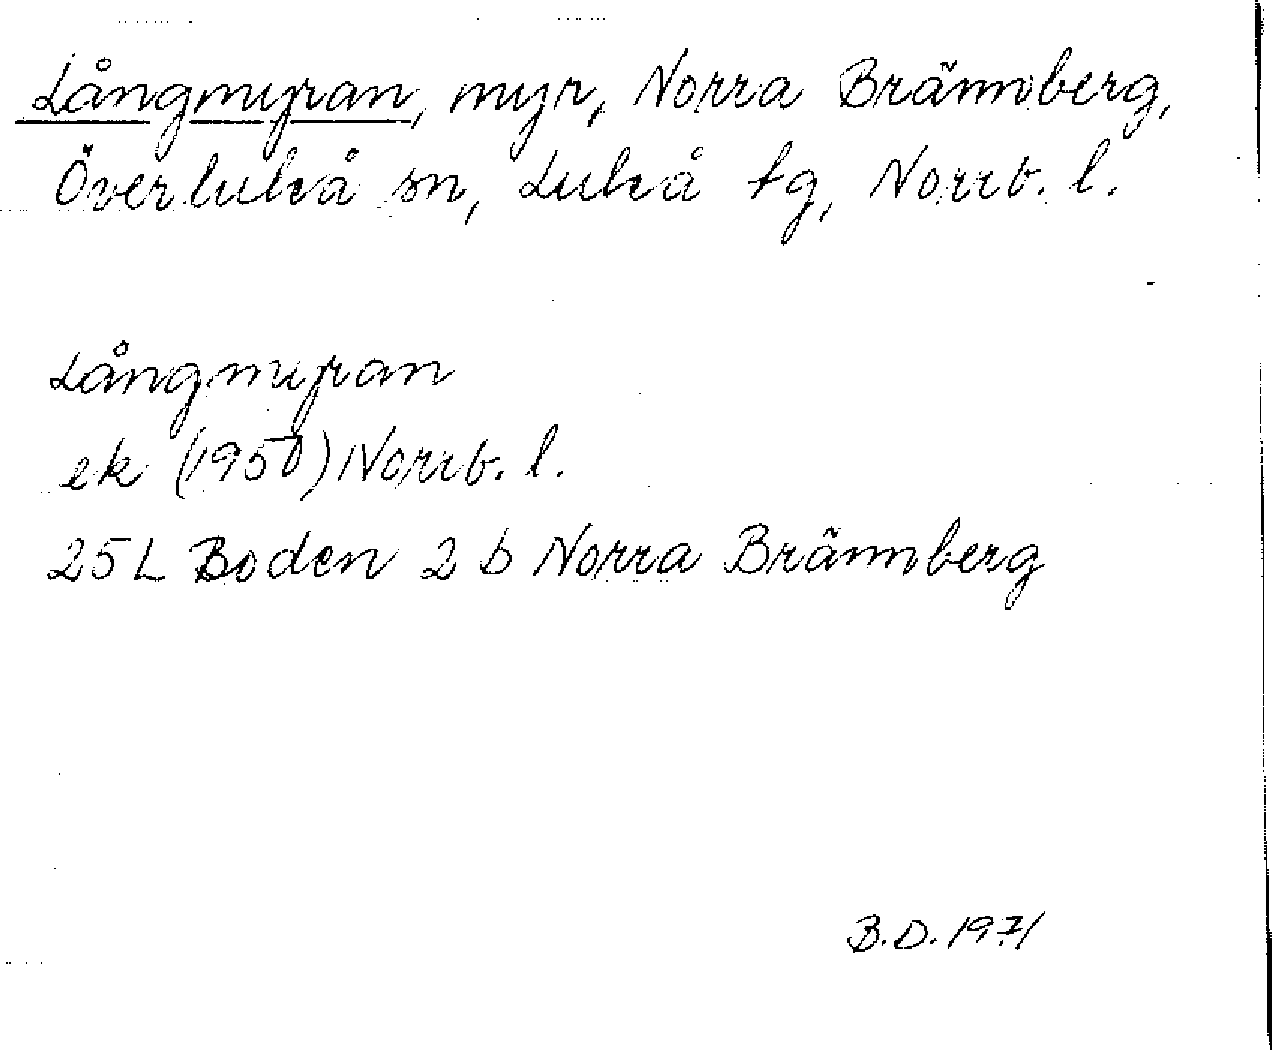 Långmyran, myr, Norra Brännberg,
Överluleå sn, Luleå tg, Norrb. l.
Långmyran
ek (1950) Norrb. l.
25L Boden 2 b Norra Brännberg
B.D. 1971